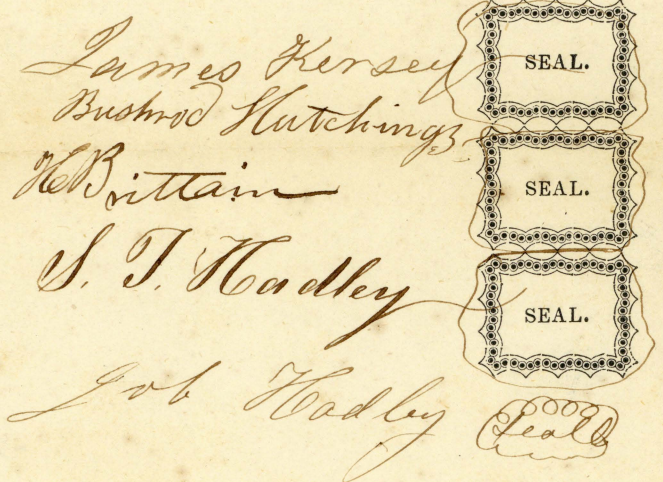 James Kersey SEAL.
Bushrod Hutchings
H Brittain SEAL.
S. T. Hadley SEAL.
Job Hadley Seal